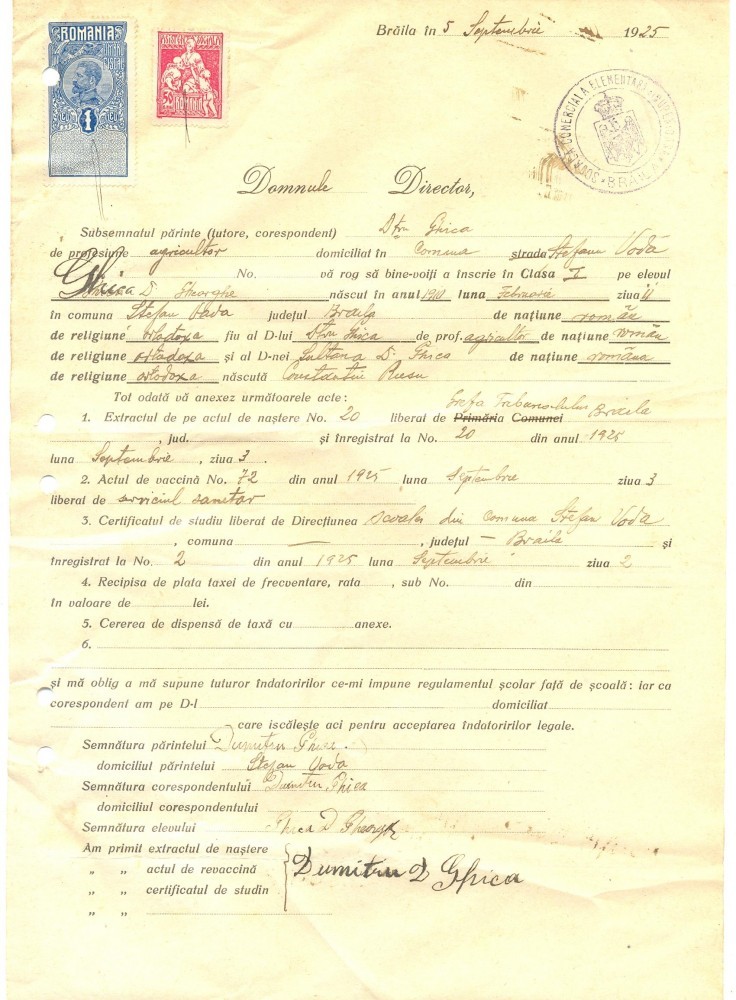 Brăila în 5 Septembrie 1925
ROMANIA
TIMBRU FISCAL
1
LEU
50
ROMANIA
ȘCOALA COMERCIALĂ ELEMENTARĂ
BRĂILA
Domnule Director,
Subsemnatul părinte (tutore, corespondent) Dtru Ghica
de profesiune agricultor domiciliat în Comuna strada Stefan Vodă
No. vă rog să bine-voiți a înscrie în Clasa I pe elevul
Ghica D. Gheorghe născut în anul luna Februarie ziua
în comuna Stefan Voda județul Braila de națiune română
de religiune ortodoxa fiu al D-lui Dtru Ghica de prof. agricultor de națiune român
de religiune ortodoxa și al D-nei Sultana D. Ghica de națiune româna
de religiune ortodoxa născută Constantin Rusu
Tot odată vă anexez următoarele acte:
1. Extractul de pe actul de naștere No. 20 liberat de Primăria Comunei Grefa Tribunalului Braila
, jud. și înregistrat la No. 20 din anul 1925
luna Septembrie, ziua 3.
2. Actul de vaccină No. 72 din anul 1925 luna Septembrie ziua 3
liberat de serviciul sanitar
3. Certificatul de studiu liberat de Direcțiunea scoalei din Comuna Stefan Voda
, comuna — , județul — Braila și
înregistrat la No. 2 din anul 1925 luna Septembrie ziua 2
4. Recipisa de plata taxei de frecventare, rata , sub No. din
în valoare de lei.
5. Cererea de dispensă de taxă cu anexe.
6.
și mă oblig a mă supune tuturor îndatoririlor ce-mi impune regulamentul școlar față de școală: iar ca
corespondent am pe D-l domiciliat
care iscălește aci pentru acceptarea îndatoririlor legale.
Semnătura părintelui Dumitru Ghica
domiciliul părintelui Stefan Voda
Semnătura corespondentului Dumitru Ghica
domiciliul corespondentului
Semnătura elevului Ghica D Gheorghe
Am primit extractul de naștere
„ „ actul de revaccină Dumitru D Ghica
„ „ certificatul de studin
„ „